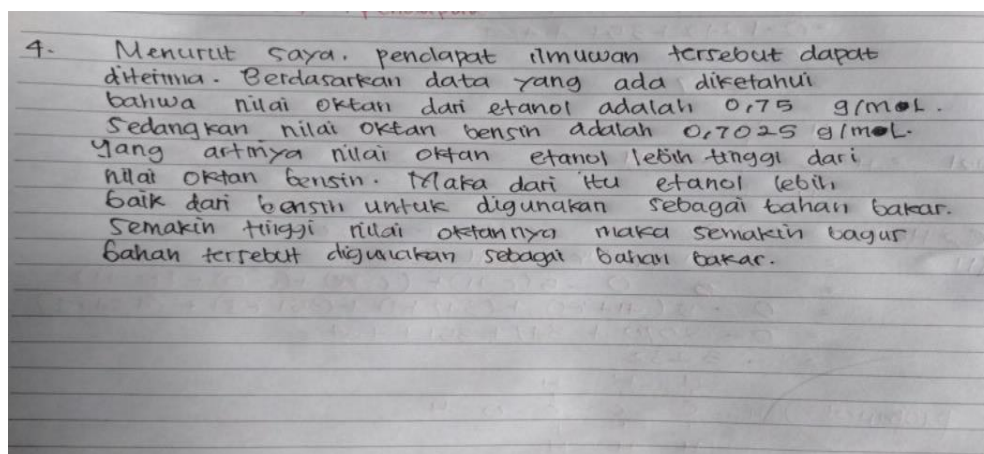 4. Menurut saya, pendapat ilmuwan tersebut dapat
diterima. Berdasarkan data yang ada diketahui
bahwa nilai oktan dari etanol adalah 0,75 g/mol.
Sedangkan nilai oktan bensin adalah 0,7025 g/mol.
Yang artinya nilai oktan etanol lebih tinggi dari
nilai oktan bensin. Maka dari itu etanol lebih
baik dari bensin untuk digunakan sebagai bahan bakar.
Semakin tinggi nilai oktannya maka semakin bagus
bahan tersebut digunakan sebagai bahan bakar.